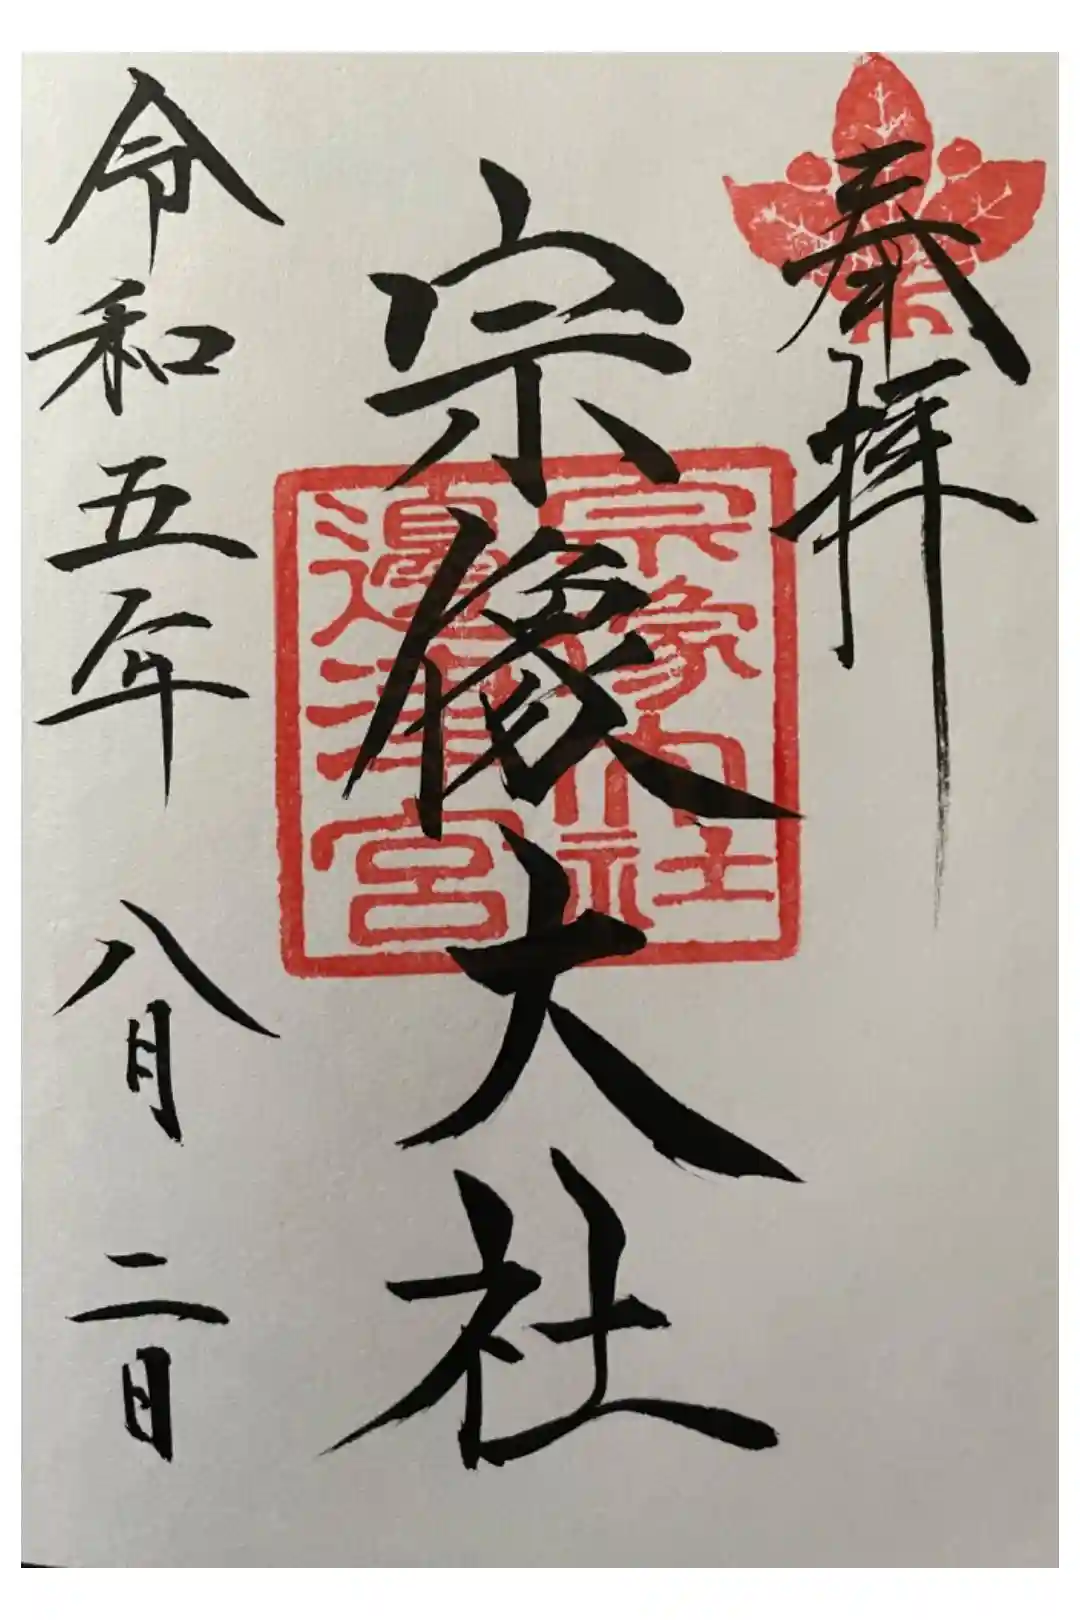 奉拝
宗像大社
宗像大社
邊津宮
令和五年 八月 二日